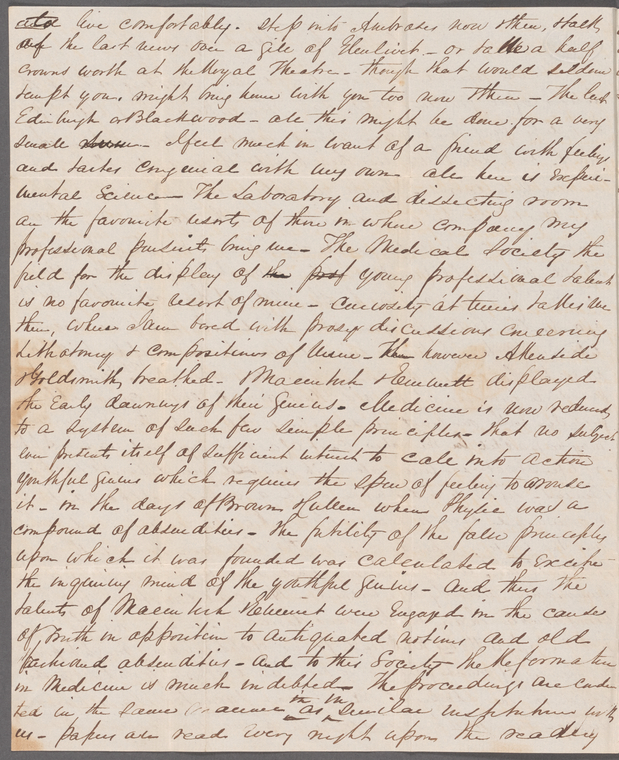 live comfortably. step into Ambroses now & then, & talk
of the last news over a Gill of Glenlivet - or take a half
crowns worth at the Royal Theatre - though that would seldom
tempt you, might bring home with you too now & then - The last
Edinburgh or Blackwood - all this might be done for a very
small - I feel much in want of a friend with feelings
and tastes congenial with my own all here is experi-
mental Science - The Laboratory and dissecting room
are the favourite resorts of those in whose company my
professional pursuits bring me - The Medical Society the
field for the display of the young professional talent
is no favourite resort of mine - curiosity at times takes me
there, where I am bored with prosy discussions concerning
Lithotomy & compositions of Urine - here however Akenside
& Goldsmith breathed - Macintosh & Emmett displayed
the Early dawnings of their Genius - Medicine is now reduced
to a System of such few simple principles - that no subject
can present itself of sufficient interest to call into action
youthful Genius which requires the spur of feeling to arouse
it - in the days of Brown & Cullen when Physic was a
compound of absurdities - The futility of the false principles
upon which it was founded was calculated to excite
the inquiring mind of the youthful Genius - and thus the
talents of Macintosh & Emmet were Engaged in the cause
of truth in opposition to antiquated notions and old
fashioned absurdities - and to this Society the Reformation
in Medicine is much indebted - The proceedings are conduc
ted in the same manner as in similar institutions with
us - papers are read every night upon the reading